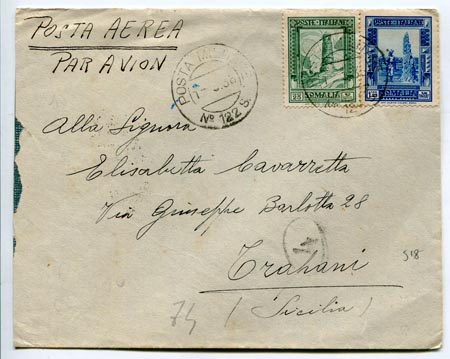 POSTA AEREA
PAR AVION
POSTE ITALIANE
SOMALIA
POSTE ITALIANE
SOMALIA
POSTA
No 122 S.
Alla Signora
Elisabetta Cavarretta
Via Giuseppe Barlotta 28
14
Trapani
(Sicilia)
518
74